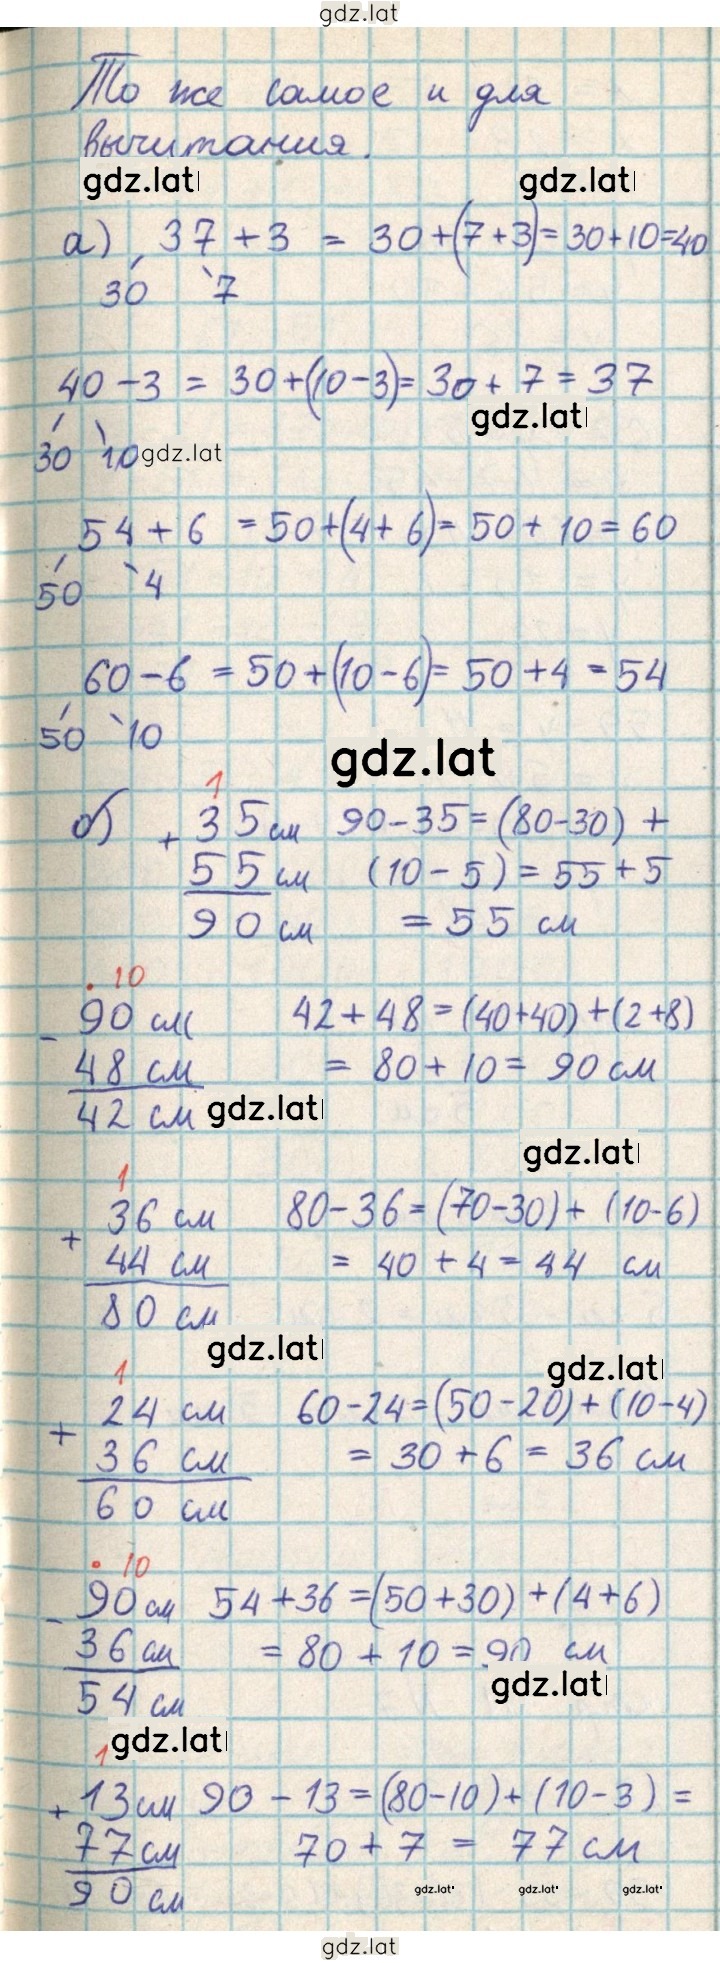 gdz.lat
То же самое и для
вычитания.
gdz.lat gdz.lat
а) 37 + 3 = 30 + (7 + 3) = 30 + 10 = 40
30 7
40 - 3 = 30 + (10 - 3) = 30 + 7 = 37
gdz.lat
30 10 gdz.lat
54 + 6 = 50 + (4 + 6) = 50 + 10 = 60
50 4
60 - 6 = 50 + (10 - 6) = 50 + 4 = 54
50 10
gdz.lat
1
б) + 35 см 90 - 35 = (80 - 30) +
55 см (10 - 5) = 55 + 5
90 см = 55 см
. 10
- 90 см 42 + 48 = (40 + 40) + (2 + 8)
48 см = 80 + 10 = 90 см
42 см gdz.lat
gdz.lat
1
+ 36 см 80 - 36 = (70 - 30) + (10 - 6)
44 см = 40 + 4 = 44 см
80 см
gdz.lat
gdz.lat
1
+ 24 см 60 - 24 = (50 - 20) + (10 - 4)
36 см = 30 + 6 = 36 см
60 см
. 10
- 90 см 54 + 36 = (50 + 30) + (4 + 6)
36 см = 80 + 10 = 90 см
54 см gdz.lat
1 gdz.lat
+ 13 см 90 - 13 = (80 - 10) + (10 - 3) =
77 см 70 + 7 = 77 см
90 см gdz.lat gdz.lat gdz.lat
gdz.lat